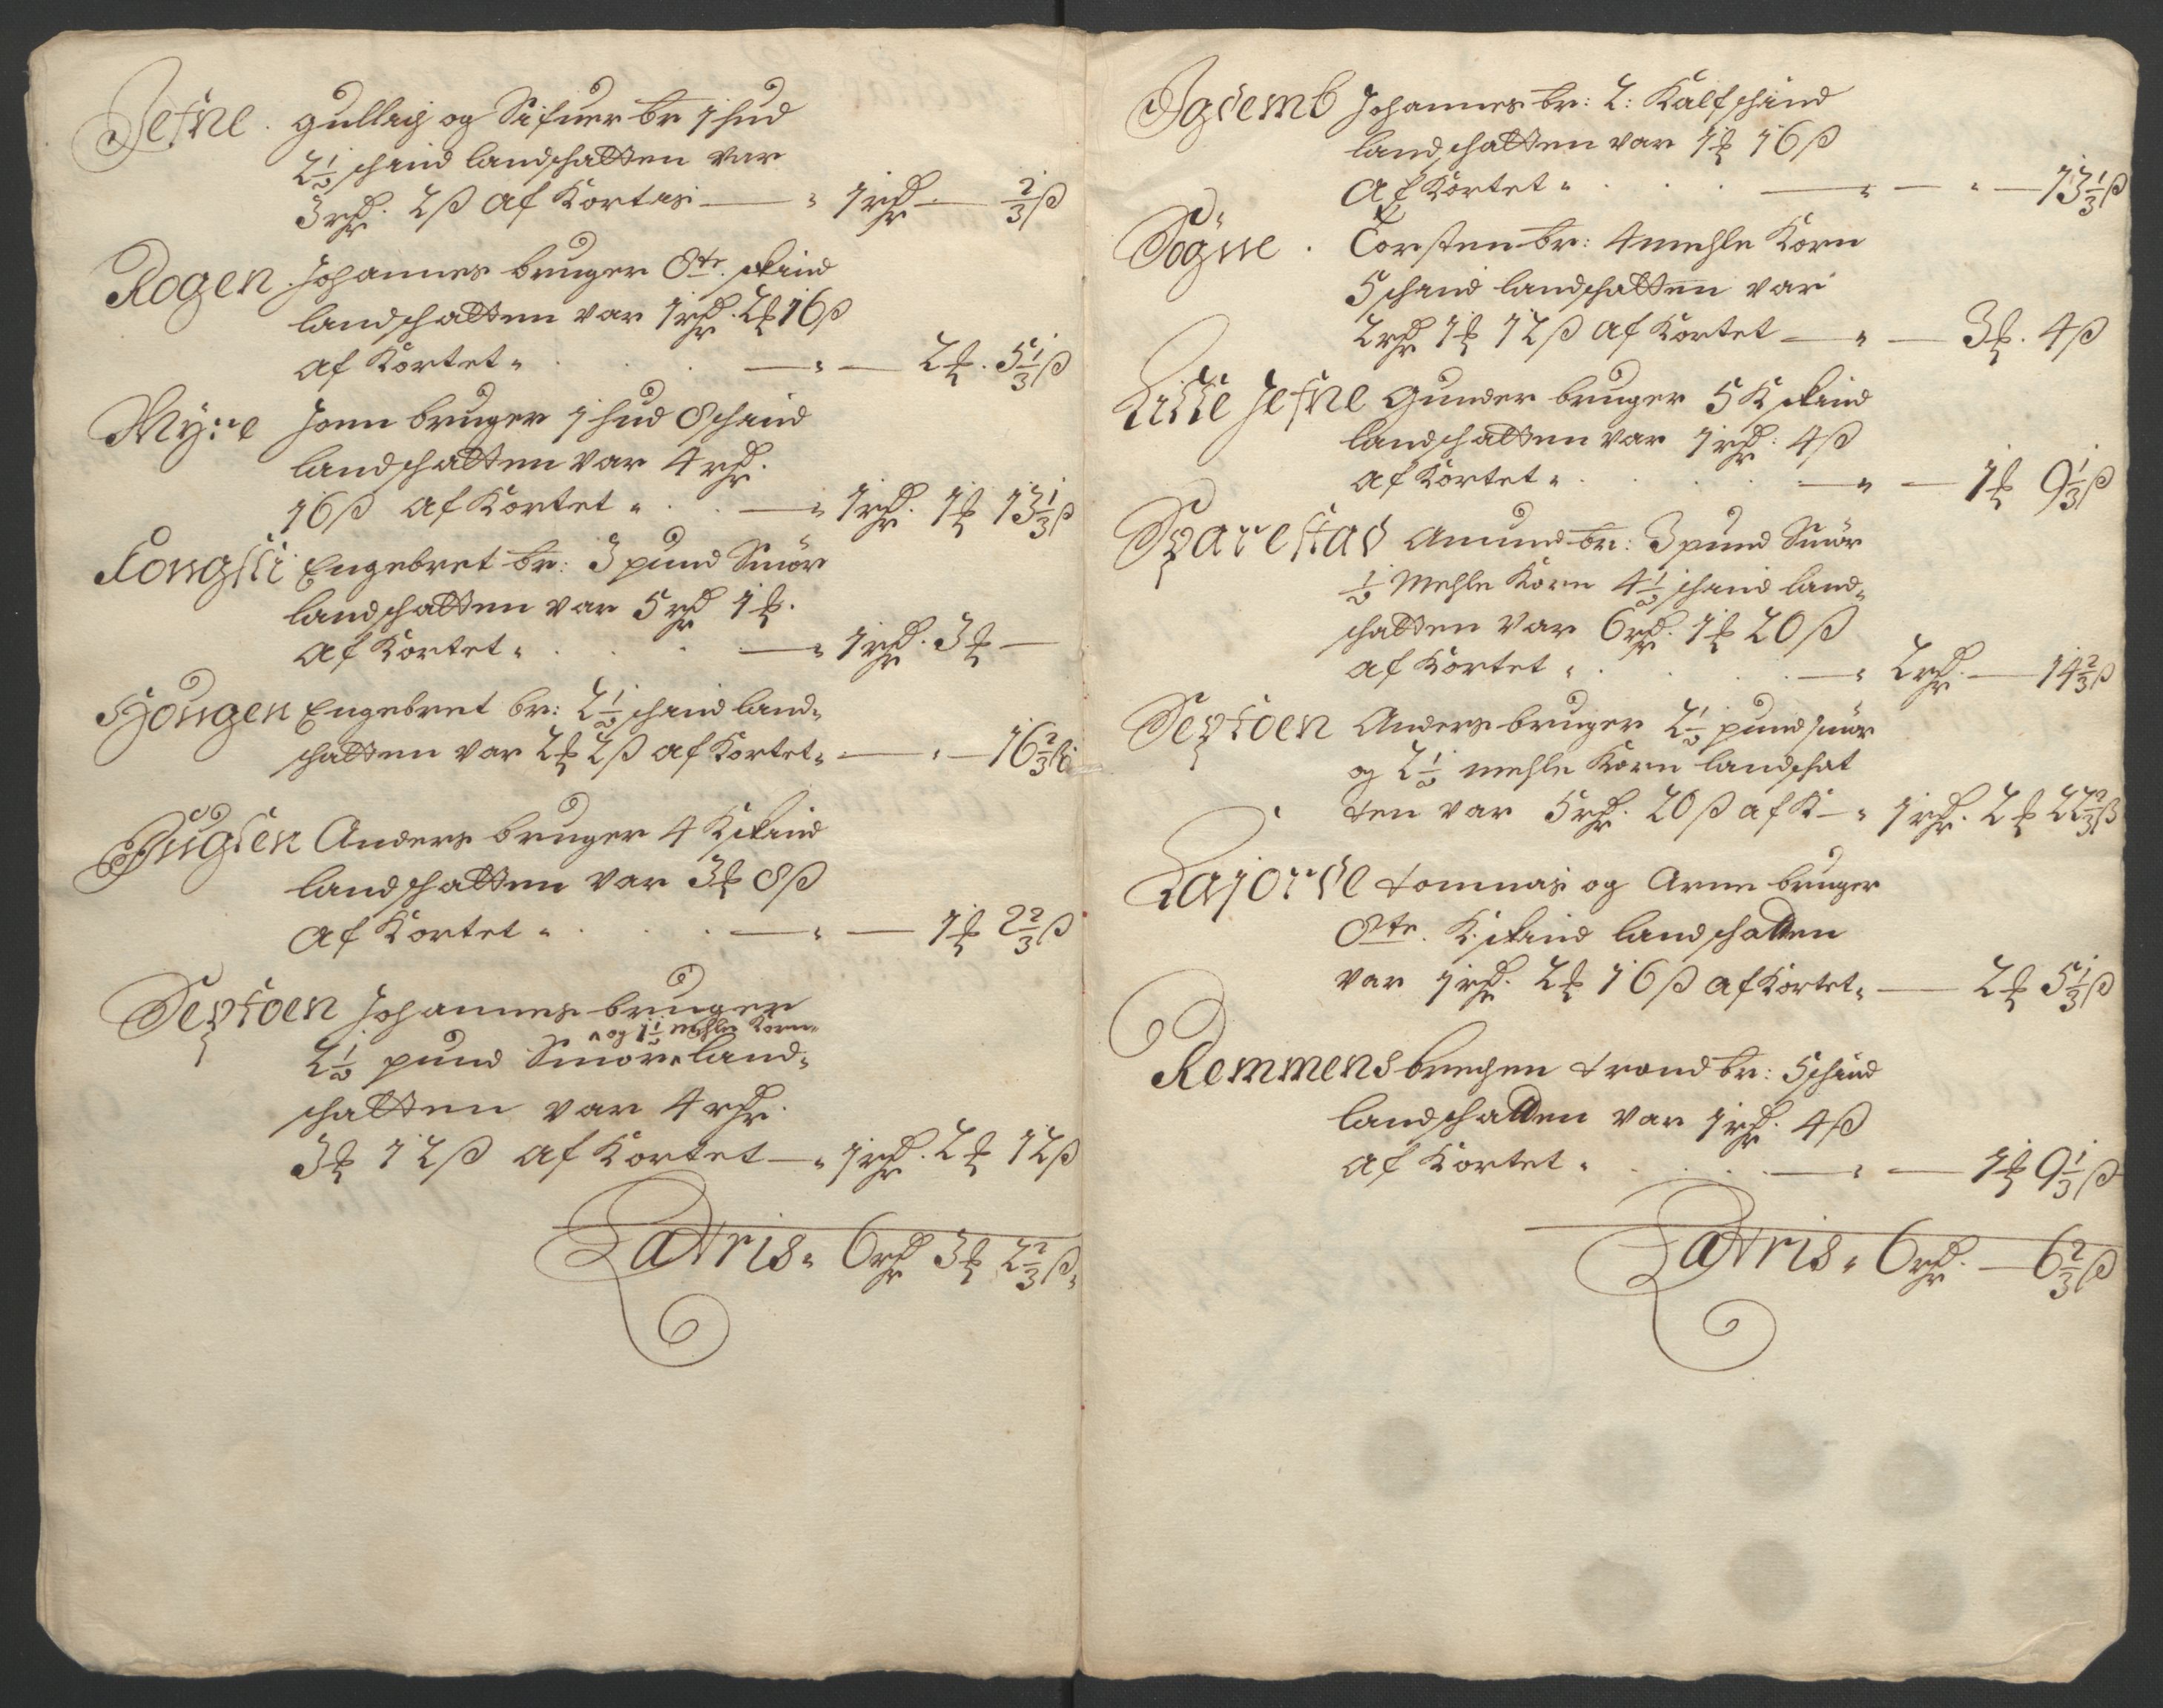 Jefne. gullag og Sifuer br 1 hud
2½ schind landschatten var
3 rdr. 2ß af Kortas — " 1 rdr — ⅔ß
Rogen. Johannes bruger 8te. skind
landschatten var 1 rdr. 2 ₰ 16ß
af Kortet " . . . — " — 2 ₰. 5⅓ß
Myre Jonn bruger 1 hud 8 schind
landschatten var 4 rdr.
16ß af Kortet " . . — " 1 rdr. 1 ₰ 13⅓ß
Longlli Engebret br: 3 pund Smör
landschatten var 5 rdr 1 ₰.
af Kortet " . . . — " 1 rdr. 3 ₰ —
Engebret br: 2½ schind land-
schatten var 2 ₰ 2ß af Kortet " — " — 16⅔ß
Anders bruger 4 K skind
landschatten var 3 ₰ 8ß
af Kortet " . . . — " — 1 ₰ 2⅔ß
Sextoen Johannes bruger
og 1½ mehle Korn
2½ pund Smör land-
schatten var 4 rdr.
3 ₰ 12ß af Kortet — " 1 rdr. 2 ₰ 12ß
Latris " 6 rdr 3 ₰ 2⅔ß

Johannes br: 2: Kalfschind
landschatten var 1 ₰ 16ß
af Kortet " . . . — " — " — 13⅓ß
Sögne . Torsten br: 4 mehle Korn
5 schind landschatten var
2 rdr 1 ₰ 12ß af Kortet — " — 3 ₰. 4ß
Lille Jefne Gunder bruger 5 K skind
landschatten var 1 rdr: 4ß
af Kortet " . . . — " — 1 ₰ 9⅓ß
Sparestad Amund br: 3 pund Smör
½ Mehle Korn 4½ schind land-
schatten var 6 rdr. 1 ₰ 20ß
af Kortet " . . . — " 2 rdr. — 14⅔ß
Sextoen Anders bruger 2½ pund smör
og 2½ mehle Korn landschat
ten var 5 rdr. 20ß af K — " 1 rdr. 2 ₰ 22⅔ß
Lajorde tommas og Arne bruger
8te. K. skind landschatten
var 1 rdr. 2 ₰ 16ß af Kortet " — 2 ₰ 5⅓ß
Remmens brechen trond br: 5 schind
landschatten var 1 rdr. 4ß
af Kortet " . . . — " — 1 ₰ 9⅓ß
Latris " 6 rdr. — 6⅔ß